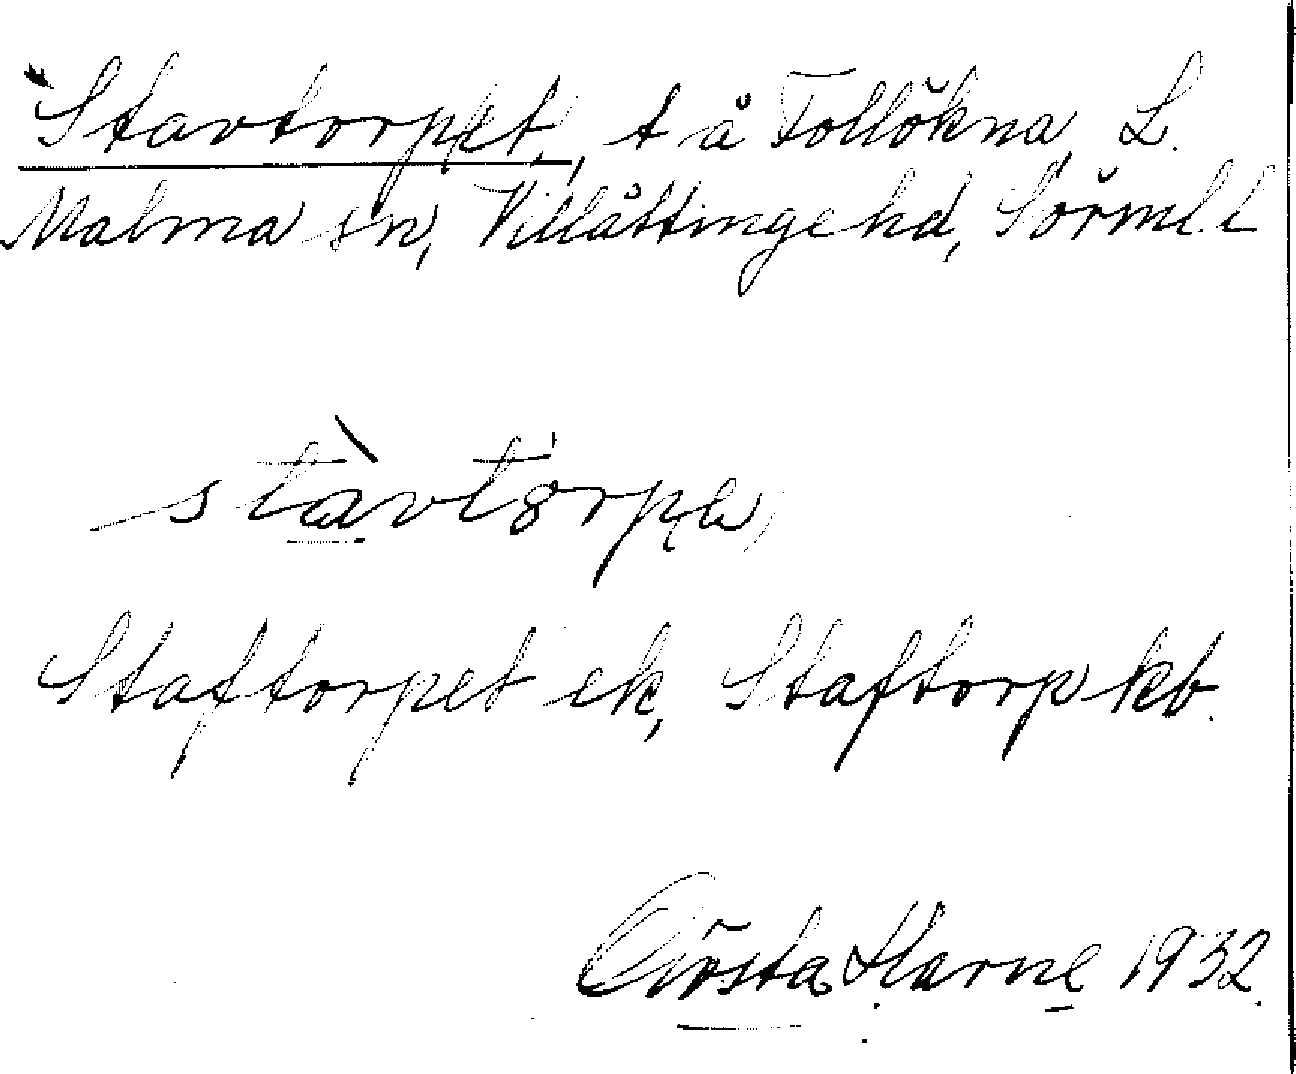 Stavtorpet, t å Tollökna, L.
Malma sn, Villåttinge hd, Sörml. l
stàvtórpa,
Staftorpet ek, Staftorp kb.
Gösta Harne 1932.